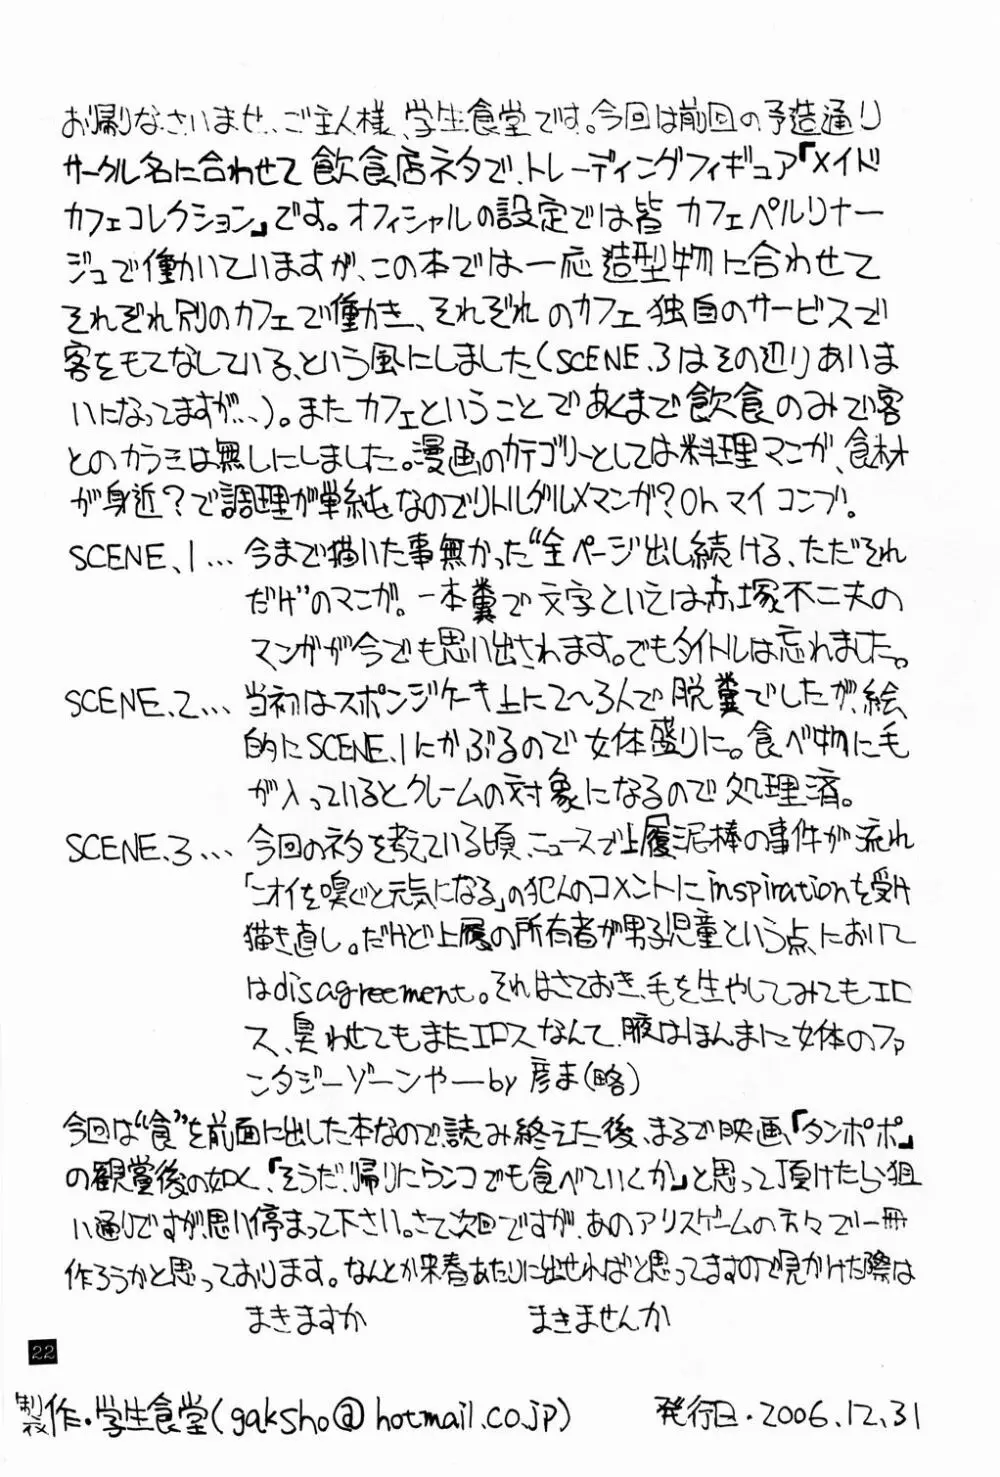 お帰りなさいませ、ご主人様、学生食堂です。今回は前回の予造通り
サークル名に合わせて飲食店ネタで、トレーディングフィギュア『メイド
カフェコレクション』です。オフィシャルの設定では皆カフェペルリナー
ジュで働いていますが、この本では一応造型物に合わせて
それぞれ別のカフェで働き、それぞれのカフェ独自のサービスで
客をもてなしている、という風にしました(SCENE.3はその辺りあいま
いになってますが…)。またカフェということであくまで飲食のみで客
とのカラミは無しにしました。漫画のカテゴリーとしては料理マンガ、食材
が身近？で調理が単純なのでリトルグルメマンガ？Ohマイコンブ。
SCENE.1… 今まで描いた事無かった“全ページ出し続ける、ただそれ
だけ”のマンガ。一本糞で文字といえば赤塚不二夫の
マンガが今でも思い出されます。でもタイトルは忘れました。
SCENE.2… 当初はスポンジケーキ上に2〜3人で脱糞でしたが、絵
的にSCENE.1にかぶるので女体盛りに。食べ物に毛
が入っているとクレームの対象になるので処理済。
SCENE.3… 今回のネタを考えている頃、ニュースで上履泥棒の事件が流れ
「ニオイを嗅ぐと元気になる」の犯人のコメントにinspirationを受け
描き直し。だけど上履の所有者が男子児童という点において
はdisagreement。それはさておき、毛を生やしてみてもエロ
ス、臭わせてもまたエロスなんて、腋はほんまに女体のファ
ンタジーゾーンやーby彦ま(略)
今回は“食”を前面に出した本なので、読み終えた後、まるで映画、『タンポポ』
の観賞後の如く、『そうだ、帰りにウンコでも食べていくか』と思って頂けたら狙
い通りですが、思い停まって下さい。さて次回ですが、あのアリスゲームの方々で一冊
作ろうかと思っております。なんとか来春あたりに出せればと思ってますので見かけた際は
まきますか まきませんか
22
製作・学生食堂(gaksho@hotmail.co.jp) 発行日・2006.12.31